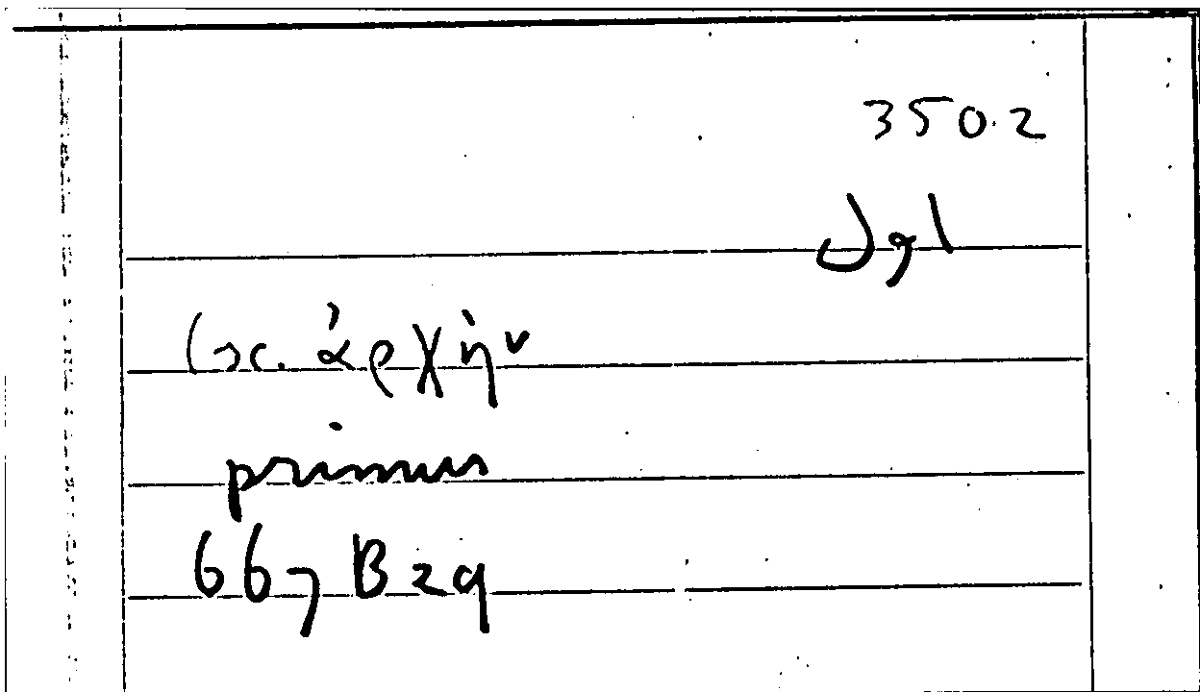 350.2
اول
(sc. ἀρχὴν
primus
667 B 29